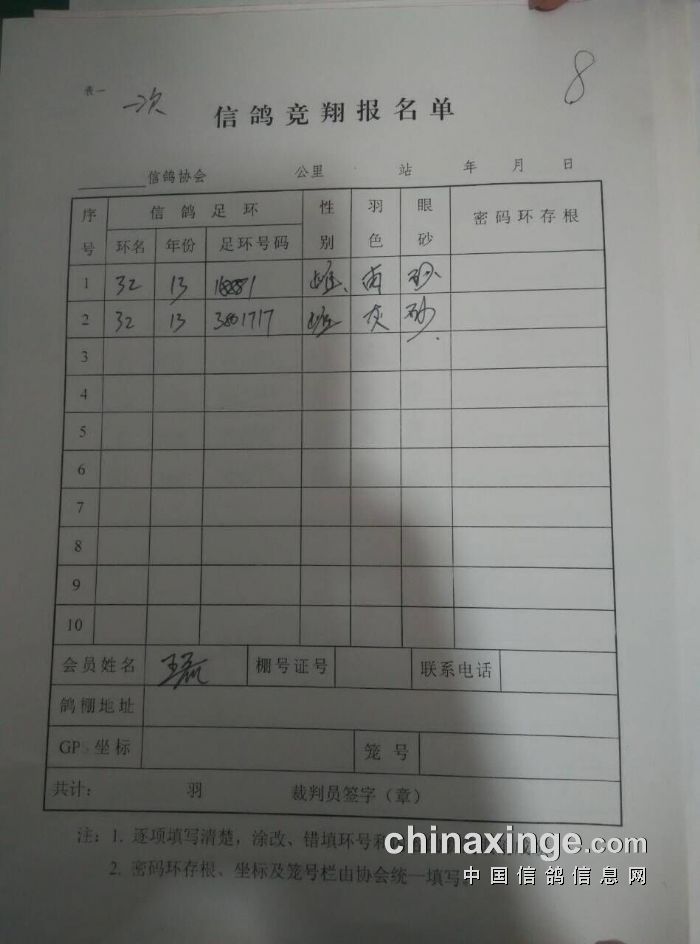 表一
一次
8
信鸽竞翔报名单
信鸽协会 公里 站 年 月 日
序号 信鸽足环 性别 羽色 眼砂 密码环存根
环名 年份 足环号码
1 32 13 雌 砂
2 32 13 3801717 雌 灰 砂
3
4
5
6
7
8
9
10
会员姓名 王磊 棚号证号 联系电话
鸽棚地址
GP 坐标 笼号
共计: 羽 裁判员签字(章)
注:1. 逐项填写清楚,涂改、错填环号和
2. 密码环存根、坐标及笼号栏由协会统一填写。
chinaxinge.com
中国信鸽信息网